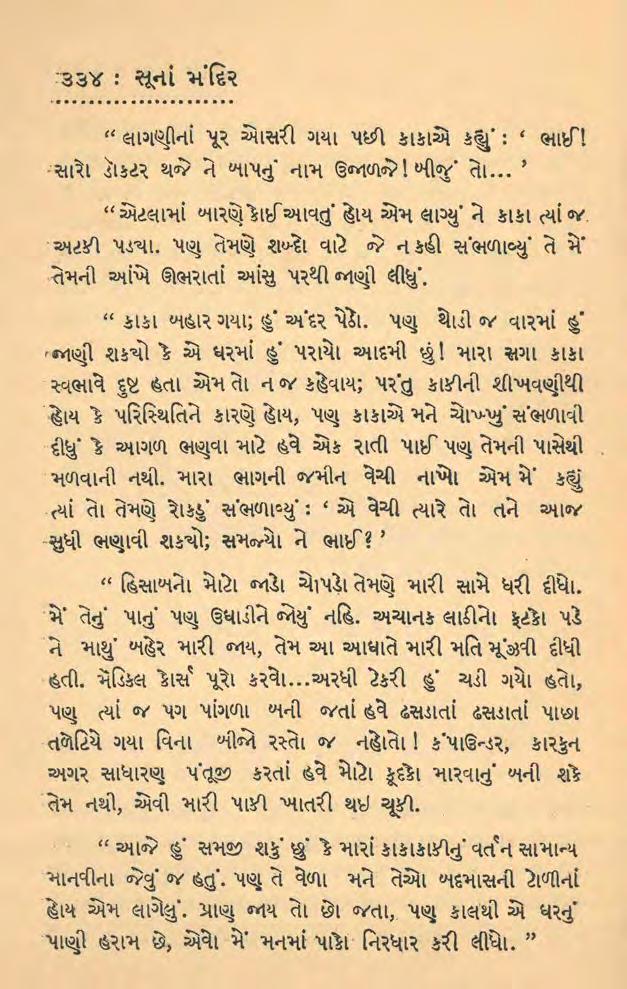 ૩૩૪ : સૂનાં મંદિર
“ લાગણીનાં પૂર ઓસરી ગયા પછી કાકાએ કહ્યું : ‘ ભાઈ!
સારો ડૉકટર થજે ને બાપનું નામ ઉજાળજે! બીજું તો... ’
“એટલામાં બારણે કોઈ આવતું હોય એમ લાગ્યું ને કાકા ત્યાં જ
અટકી પડ્યા. પણ તેમણે શબ્દો વાટે જે ન કહી સંભળાવ્યું તે મેં
તેમની આંખે ઊભરાતાં આંસુ પરથી જાણી લીધું.
“ કાકા બહાર ગયા; હું અંદર પેઠો. પણ થોડી જ વારમાં હું
જાણી શકયો કે એ ઘરમાં હું પરાયો આદમી છું! મારા સગા કાકા
સ્વભાવે દુષ્ટ હતા એમ તો ન જ કહેવાય; પરંતુ કાકીની શીખવણીથી
હોય કે પરિસ્થિતિને કારણે હોય, પણ કાકાએ મને ચોખ્ખું સંભળાવી
દીધું કે આગળ ભણવા માટે હવે એક રાતી પાઈ પણ તેમની પાસેથી
મળવાની નથી. મારા ભાગની જમીન વેચી નાખો એમ મેં કહ્યું
ત્યાં તો તેમણે રોકડું સંભળાવ્યું : ‘ એ વેચી ત્યારે તો તને આજ
સુધી ભણાવી શકયો; સમજ્યો ને ભાઈ? ’
“ હિસાબનો મોટો જાડો ચોપડો તેમણે મારી સામે ધરી દીધો.
મેં તેનું પાનું પણ ઉઘાડીને જોયું નહિ. અચાનક લાઠીનો ફટકો પડે
ને માથું બહેર મારી જાય, તેમ આ આઘાતે મારી મતિ મૂંઝવી દીધી
હતી. મૅડિકલ કોર્સ પૂરો કરવો...અરધી ટેકરી હું ચડી ગયો હતો,
પણ ત્યાં જ પગ પાંગળા બની જતાં હવે ઢસડાતાં ઢસડાતાં પાછા
તળેટિયે ગયા વિના બીજો રસ્તો જ નહોતો ! કંપાઉન્ડર, કારકુન
અગર સાધારણ પંતૂજી કરતાં હવે મોટો કૂદકો મારવાનું બની શકે
તેમ નથી, એવી મારી પાકી ખાતરી થઇ ચૂકી.
“ આજે હું સમજી શકું છું કે મારાં કાકાકાકીનું વર્તન સામાન્ય
માનવીના જેવું જ હતું. પણ તે વેળા મને તેઓ બદમાસની ટોળીનાં
હોય એમ લાગેલું. પ્રાણુ જાય તો છો જતા, પણ કાલથી એ ઘરનું
પાણી હરામ છે, એવો મેં મનમાં પાકો નિરધાર કરી લીધો. ”